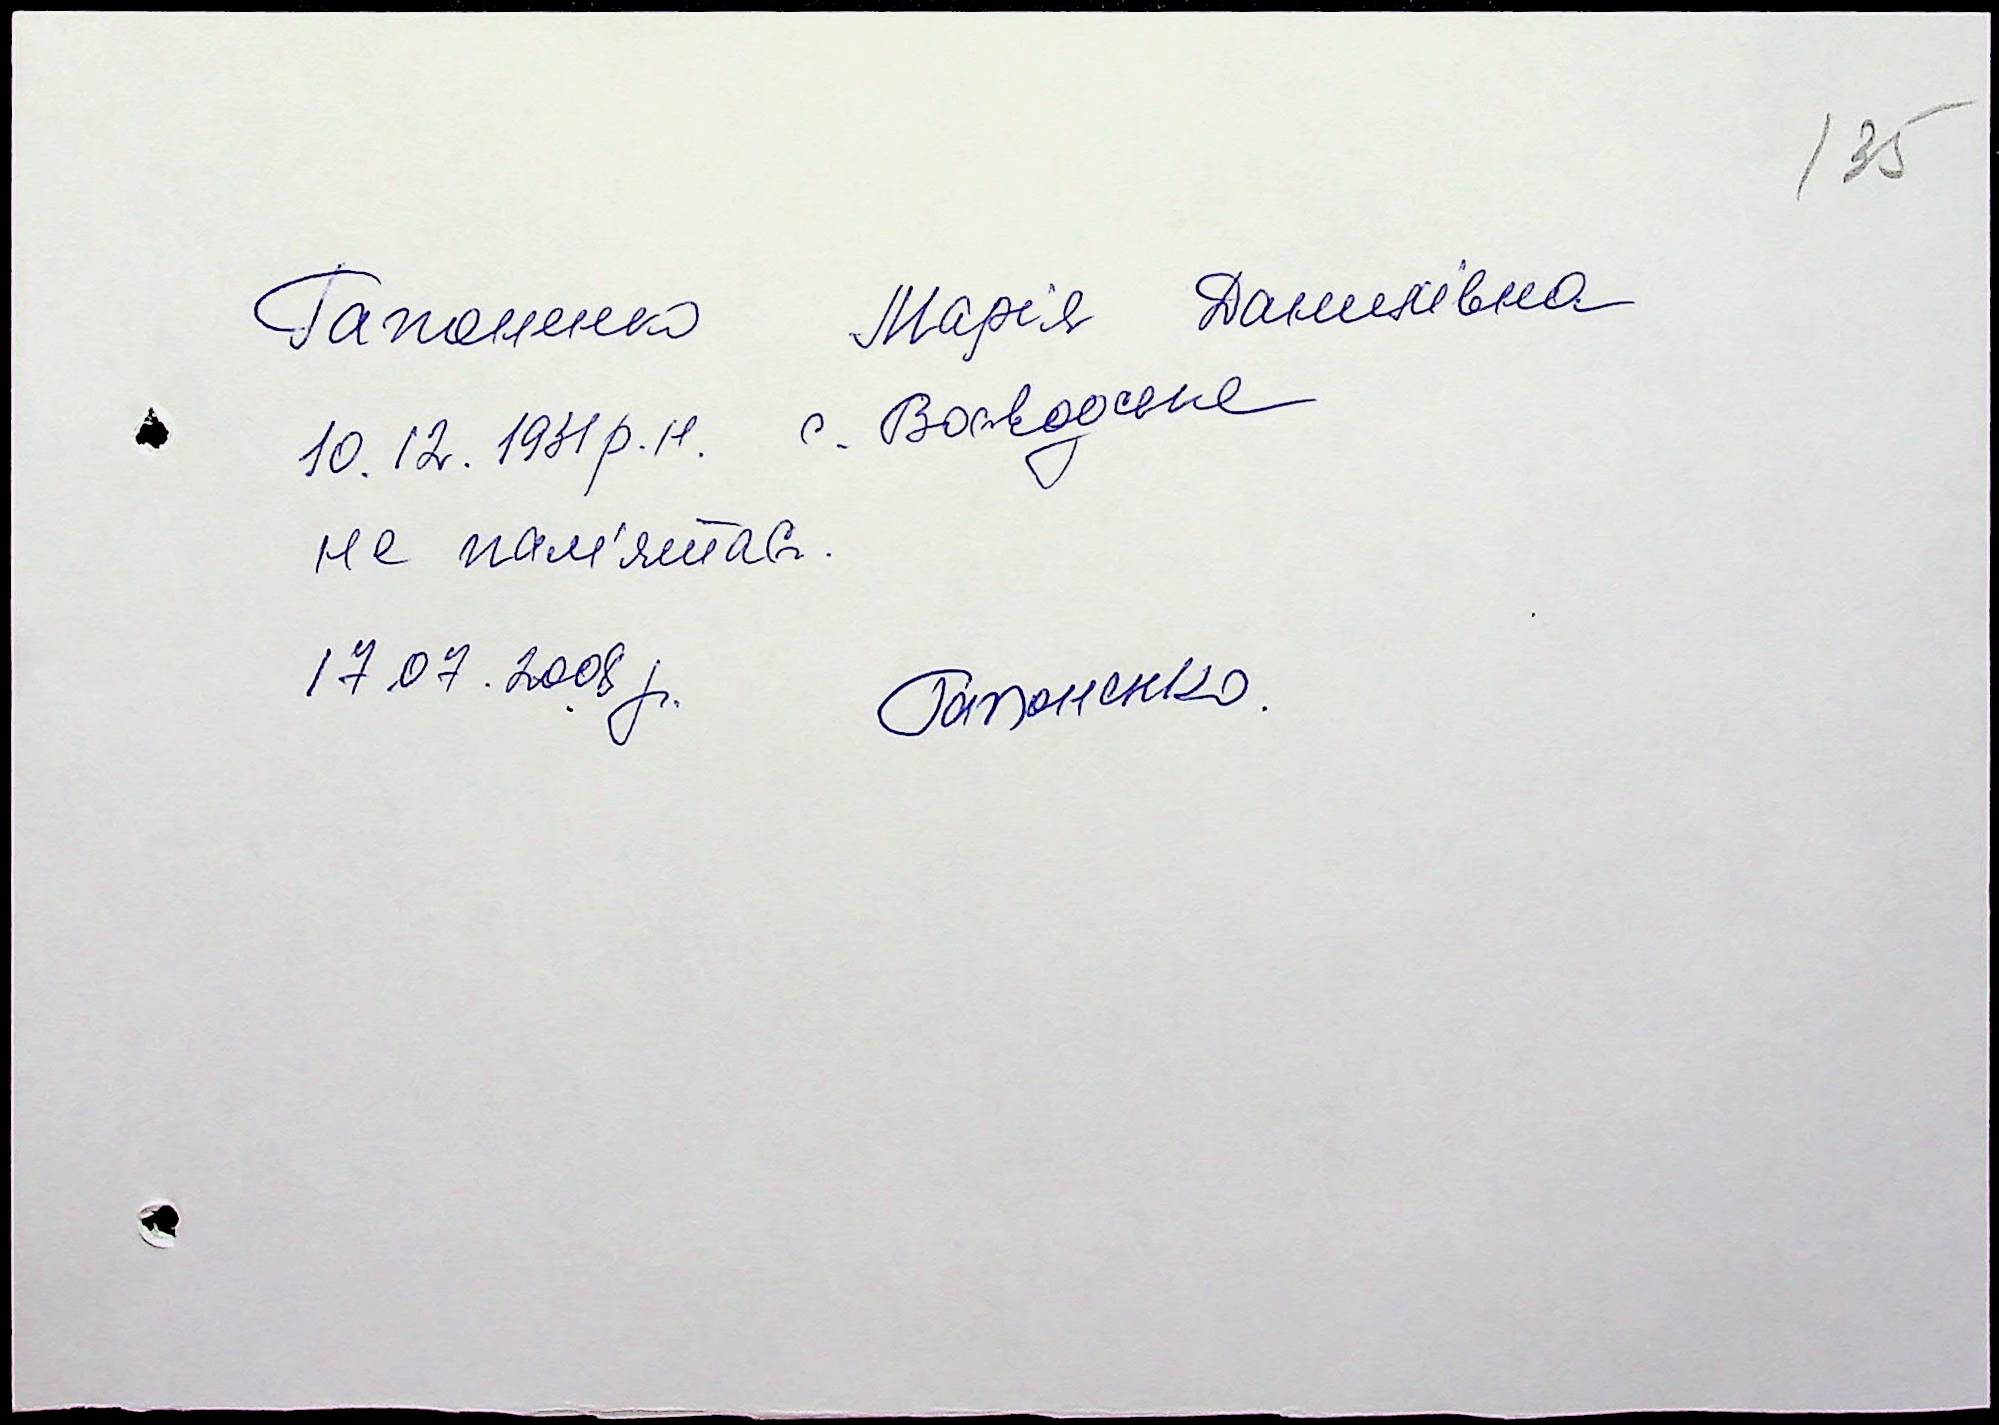 135
Гапоненко Марія Данилівна
10.12.1931 р.н. с. Воєводське
не пам'ятає.
17.07.2008 р. Гапоненко.